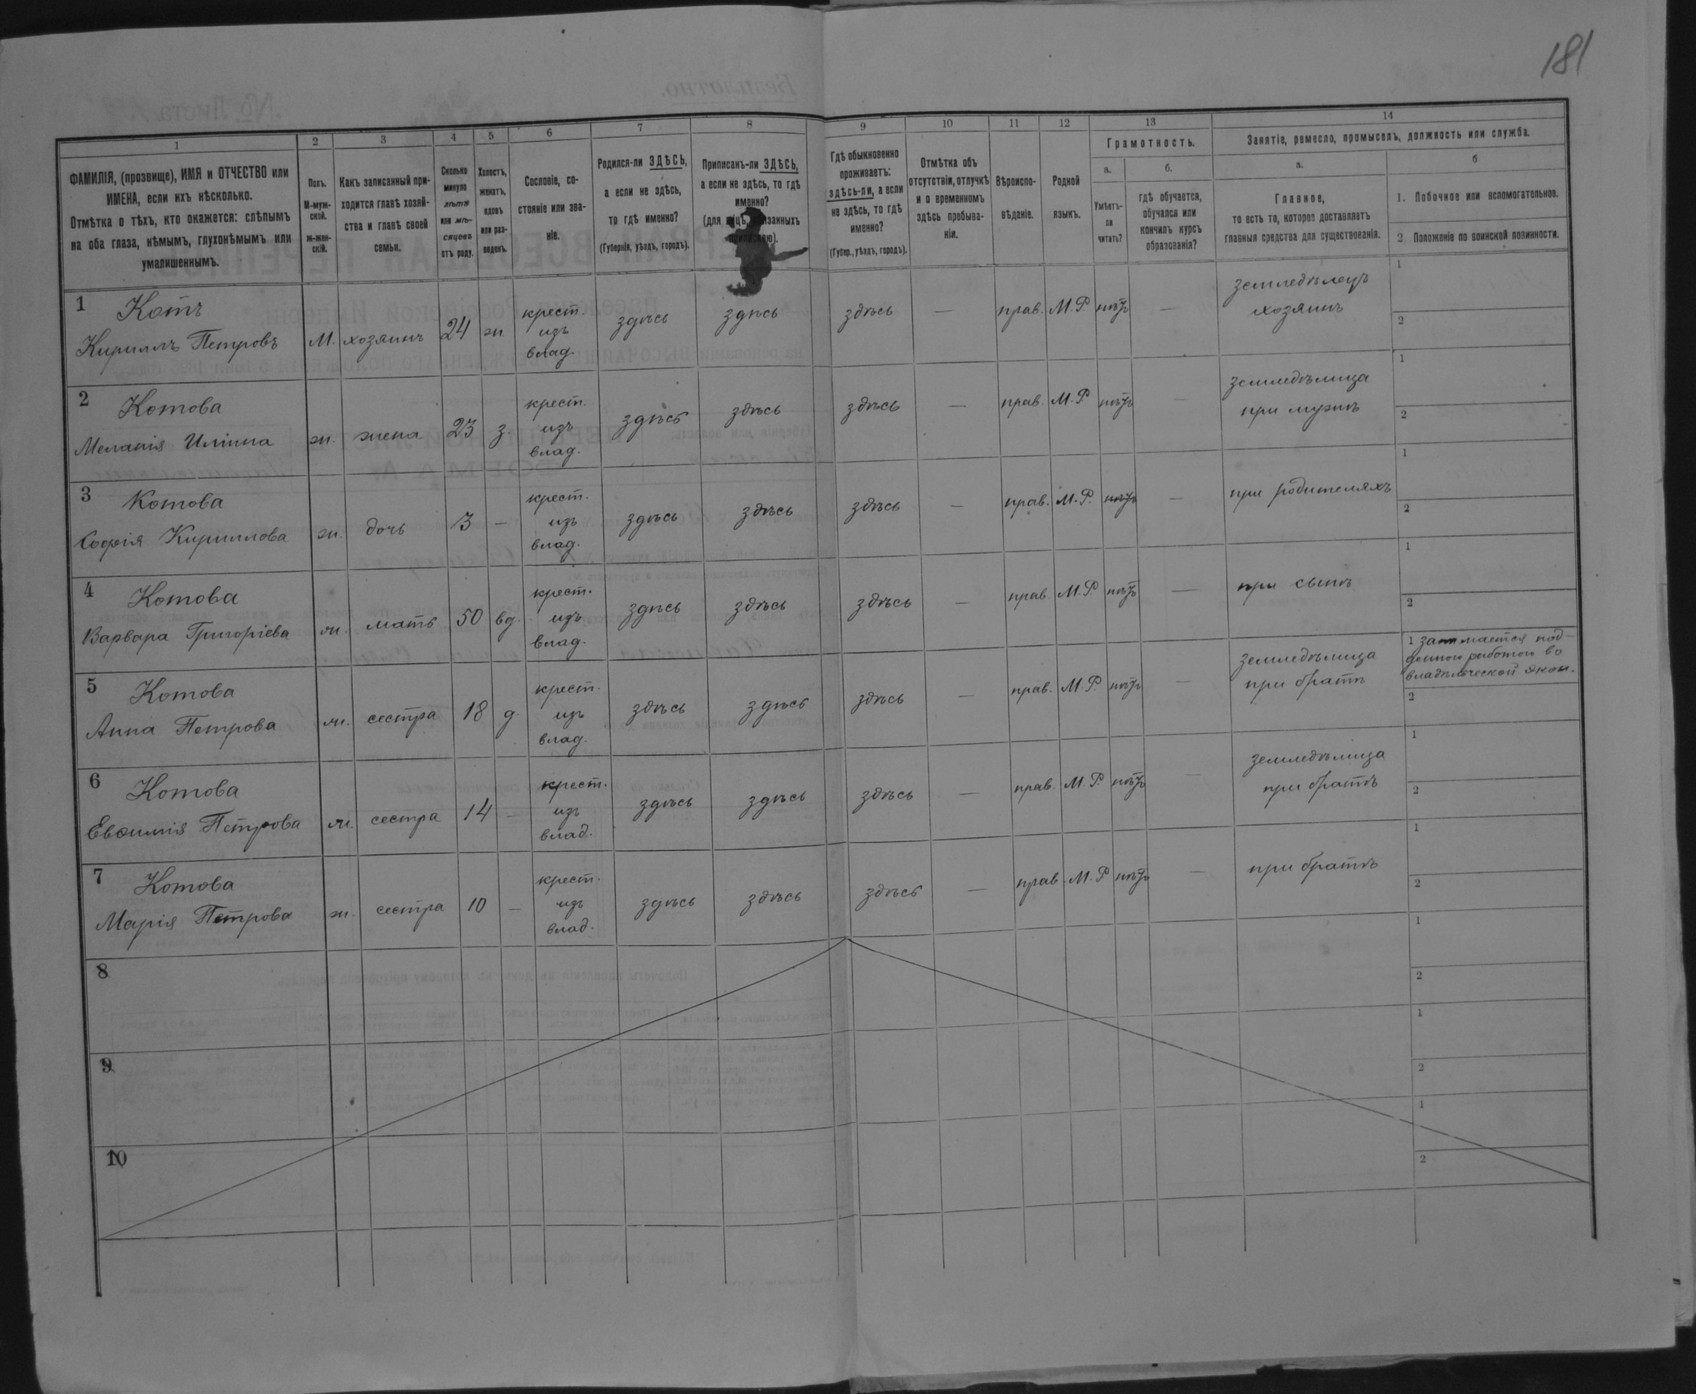 181
1
2
3
4
5
6
7
8
9
10
11
12
13
14
ФАМИЛІЯ, (прозвище), ИМЯ и ОТЧЕСТВО или
ИМЕНА, если ихъ нѣсколько.
Отмѣтка о тѣхъ, кто окажется: слѣпымъ
на оба глаза, нѣмымъ, глухонѣмымъ или
умалишеннымъ.
Полъ.
М-муж-
ской.
Ж-жен-
скій.
Какъ записанный при-
ходится главѣ хозяй-
ства и главѣ своей
семьи.
Сколько
минуло
лѣтъ
или мѣ-
сяцевъ
отъ роду.
Холостъ,
женатъ,
вдовъ
или раз-
веденъ.
Сословіе, со-
стояніе или зва-
ніе.
Родился-ли ЗДѢСЬ,
а если не здѣсь,
то гдѣ именно?
(Губернія, уѣздъ, городъ).
Приписанъ-ли ЗДѢСЬ,
а если не здѣсь, то гдѣ
именно?
(для лицъ,
Гдѣ обыкновенно
проживаетъ:
здѣсь-ли, а если
не здѣсь, то гдѣ
именно?
(Губер., уѣздъ, городъ).
Отмѣтка объ
отсутствіи, отлучкѣ
и о временномъ
здѣсь пребыва-
ніи.
Вѣроиспо-
вѣданіе.
Родной
языкъ.
Грамотность.
а.
Умѣетъ-
ли
читать?
б.
гдѣ обучается,
обучался или
кончилъ курсъ
образованія?
Занятіе, ремесло, промыселъ, должность или служба.
а.
Главное,
то есть то, которое доставляетъ
главныя средства для существованія.
б
1. Побочное или вспомогательное.
2 Положеніе по воинской повинности.
1 Котъ
Кириллъ Петровъ М. хозяинъ 24 ж. крест. изъ влад. здѣсь здѣсь здѣсь — прав. М.Р. нѣтъ — земледѣлецъ хозяинъ 1 2
2 Котова
Меланія Илінна ж. жена 23 з. крест. изъ влад. здѣсь здѣсь здѣсь — прав. М.Р. нѣтъ — земледѣлица при мужѣ 1 2
3 Котова
Софія Кириллова ж. дочь 3 — крест. изъ влад. здѣсь здѣсь здѣсь — прав. М.Р. нѣтъ — при родителяхъ 1 2
4 Котова
Варвара Григоріева ж. мать 50 вд. крест. изъ влад. здѣсь здѣсь здѣсь — прав. М.Р. нѣтъ — при сынѣ 1 2
5 Котова
Анна Петрова ж. сестра 18 д. крест. изъ влад. здѣсь здѣсь здѣсь — прав. М.Р. нѣтъ — земледѣлица при братѣ 1 занимается под-
денной работой во
владѣльческой экон.
2
6 Котова
Евѳимія Петрова ж. сестра 14 — крест. изъ влад. здѣсь здѣсь здѣсь — прав. М.Р. нѣтъ — земледѣлица при братѣ 1 2
7 Котова
Марія Петрова ж. сестра 10 — крест. изъ влад. здѣсь здѣсь здѣсь — прав. М.Р. нѣтъ — при братѣ 1 2
8 1 2
9 1 2
10 1 2